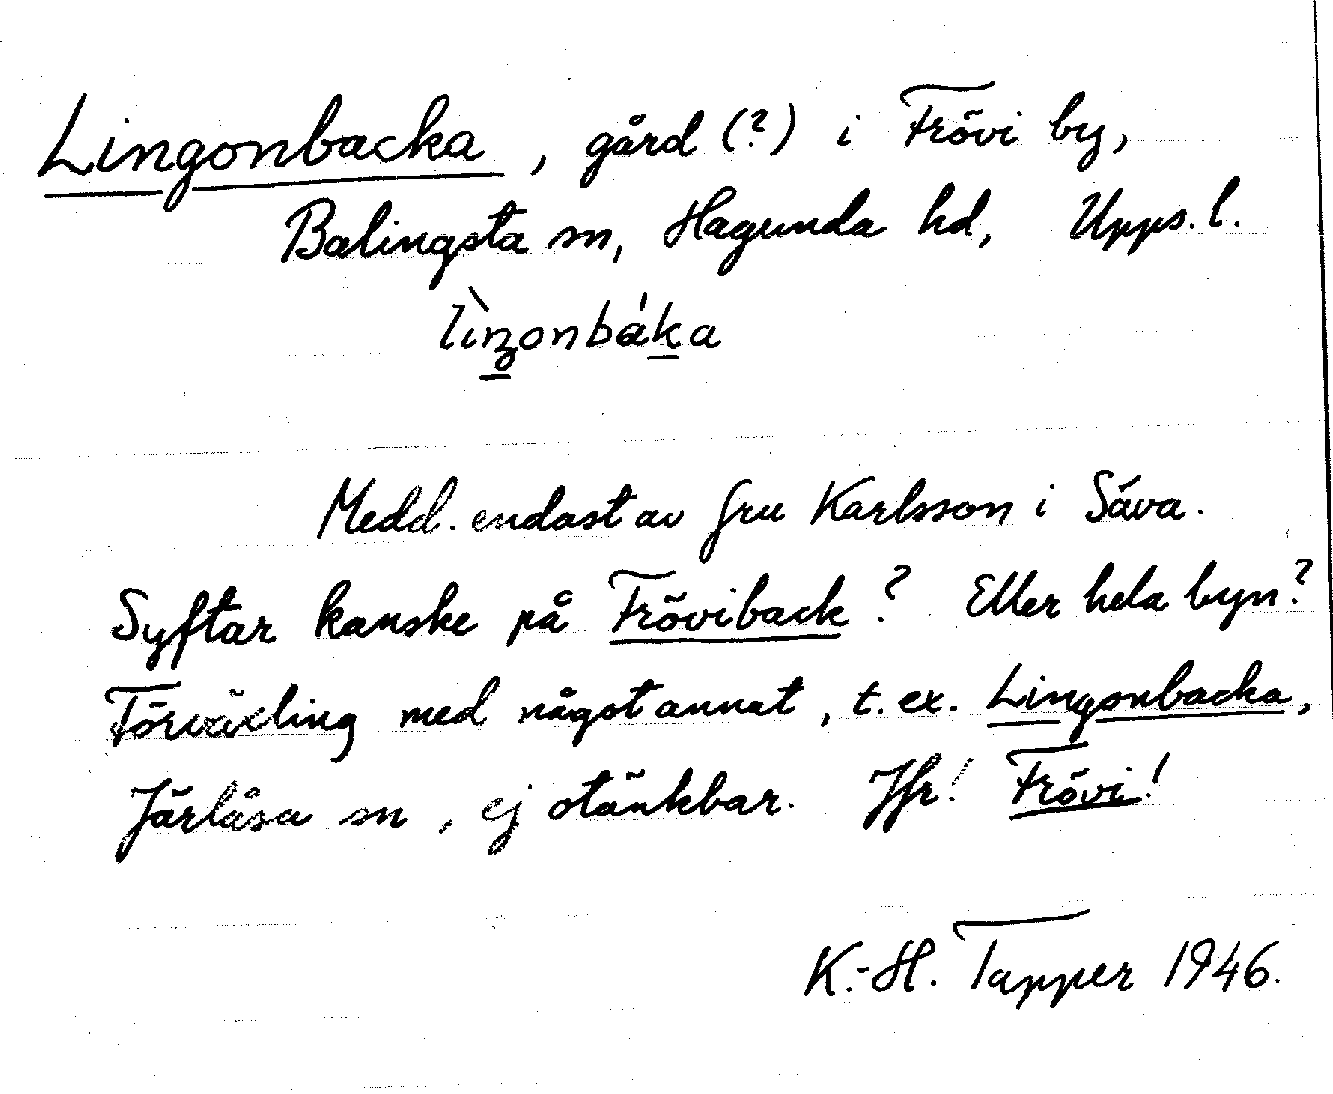 Lingonbacka, gård (?) i Frövi by,
Balingsta sn, Hagunda hd, Upps. l.
lìŋonbáka
Medd. endast av fru Karlsson i Säva.
Syftar kanske på Fröviback? Eller hela byn?
Förväxling med något annat, t. ex. Lingonbacka,
Järlåsa sn, ej otänkbar. Jfr! Frövi!
K.-H. Tapper 1946.